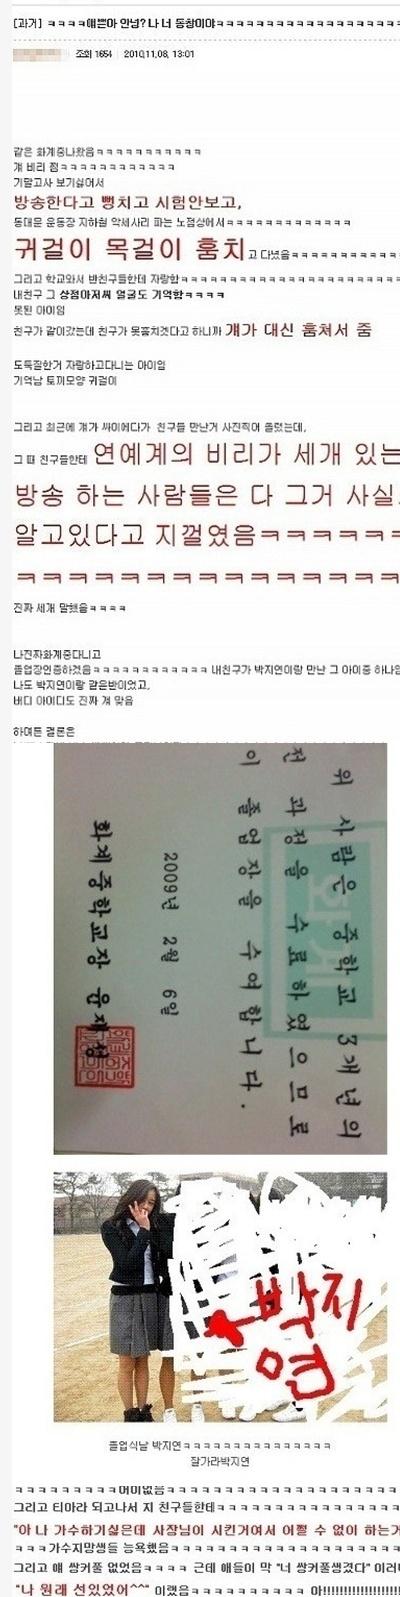 [과거] ㅋㅋㅋㅋ예쁜아 안녕? 나 너 동창이야ㅋㅋㅋㅋㅋㅋㅋㅋㅋㅋㅋㅋㅋㅋㅋㅋㅋ
조회 1654 2010.11.08. 13:01
같은 화계중나왔음ㅋㅋㅋㅋㅋㅋㅋㅋㅋㅋㅋ
걔 비리 점ㅋㅋㅋㅋㅋㅋㅋㅋㅋㅋㅋㅋ
기말고사 보기싫어서
방송한다고 뻥치고 시험안보고,
동대문 운동장 지하철 악세사리 파는 노점상에서ㅋㅋㅋㅋㅋㅋㅋㅋㅋㅋㅋㅋㅋ
귀걸이 목걸이 훔치고 다녔음ㅋㅋㅋㅋㅋㅋㅋㅋㅋㅋㅋㅋ
그리고 학교와서 반친구들한테 자랑함ㅋㅋㅋㅋㅋㅋㅋㅋㅋㅋㅋㅋㅋㅋㅋㅋㅋㅋㅋㅋ
내친구 그 상점아저씨 얼굴도 기억함ㅋㅋㅋㅋ
못된 아이임
친구가 같이갔는데 친구가 못훔치겟다고 하니까 걔가 대신 훔쳐서 줌
도둑질한거 자랑하고다니는 아이임
기억남 토끼모양 귀걸이
그리고 최근에 걔가 싸이에다가 친구들 만난거 사진찍어 올렸는데,
그 때 친구들한테 연예계의 비리가 세개 있는
방송 하는 사람들은 다 그거 사실
알고있다고 지껄였음ㅋㅋㅋㅋㅋㅋ
ㅋㅋㅋㅋㅋㅋㅋㅋㅋㅋㅋㅋㅋㅋㅋㅋ
진짜 세개 말했음ㅋㅋㅋㅋ
나진짜화계중다니고
졸업장인증하겠음ㅋㅋㅋㅋㅋㅋㅋㅋㅋㅋㅋㅋ 내친구가 박지연이랑 만난 그 아이중 하나임
나도 박지연이랑 같은반이었고,
버디 아이디도 진짜 걔 맞음
하여튼 결론은
위 사람은 중학교 3개년의
전 과정을 수료하였으므로
이 졸업장을 수여합니다.
2009년 2월 6일
화계중학교장 윤재성
화계
박지
연
졸업식날 박지연ㅋㅋㅋㅋㅋㅋㅋㅋㅋㅋㅋㅋㅋㅋㅋㅋ
잘가라박지연
ㅋㅋㅋㅋㅋㅋㅋㅋㅋㅋ어이없음ㅋㅋㅋㅋㅋㅋㅋㅋㅋㅋㅋㅋㅋㅋㅋㅋㅋㅋㅋㅋ
그리고 티아라 되고나서 지 친구들한테ㅋㅋㅋㅋㅋㅋㅋㅋㅋㅋㅋㅋㅋㅋㅋㅋㅋ
"아 나 가수하기싫은데 사장님이 시킨거여서 어쩔 수 없이 하는거
ㅋㅋㅋ가수지망생들 능욕했음ㅋㅋㅋㅋㅋㅋㅋㅋㅋㅋㅋㅋㅋㅋㅋㅋㅋㅋㅋㅋㅋ
그리고 얘 쌍커풀 없었음ㅋㅋㅋㅋ 근데 애들이 막 "너 쌍커풀생겼다" 이러니
"나 원래 선있었어^^" 이랬음ㅋㅋㅋㅋㅋㅋㅋㅋㅋ 아!!!!!!!!!!!!!!!!!!